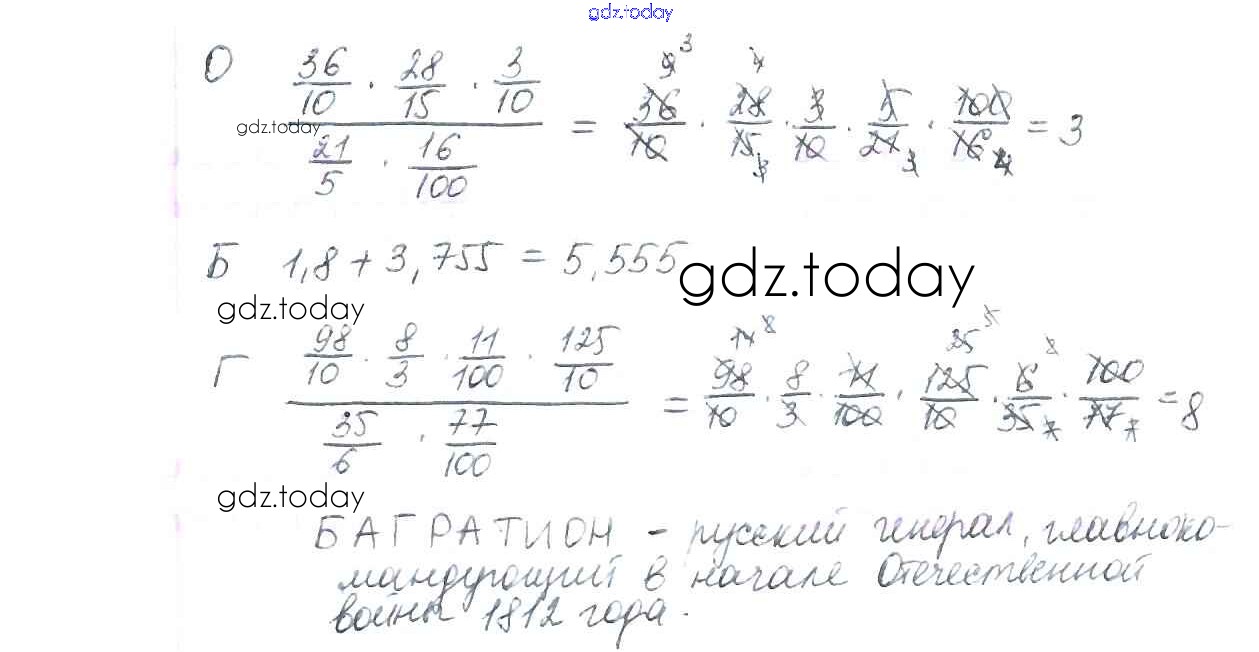 gdz.today
О 36/10 · 28/15 · 3/10 / 21/5 · 16/100 = 36/10 · 28/15 · 3/10 · 5/21 · 100/16 = 3
gdz.today
Б 1,8 + 3,755 = 5,555
gdz.today
gdz.today
Г 98/10 · 8/3 · 11/100 · 125/10 / 35/6 · 77/100 = 98/10 · 8/3 · 11/100 · 125/10 · 6/35 · 100/77 = 8
gdz.today
БАГРАТИОН – русский генерал, главноко-
мандующий в начале Отечественной
войны 1812 года.